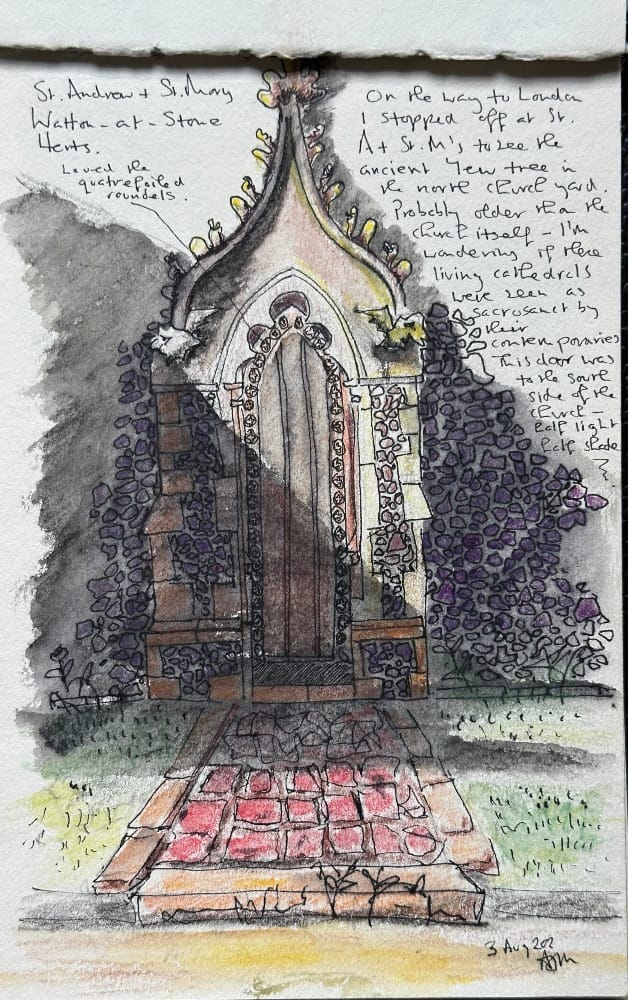 St. Andrew + St. Mary
Watton-at-Stone
Herts.
Loved the
quatrefoiled
roundels.
On the way to London
I stopped off at St.
A + St. M's to see the
ancient Yew tree in
the north church yard.
Probably older than the
church itself – I'm
wondering if these
living cathedrals
were seen as
sacrosanct by
their
contemporaries
This door was
to the south
side of the
church –
half light
half shade
3 Aug 202